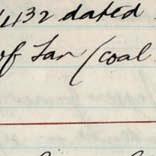 4132 dated
of Tan (coal